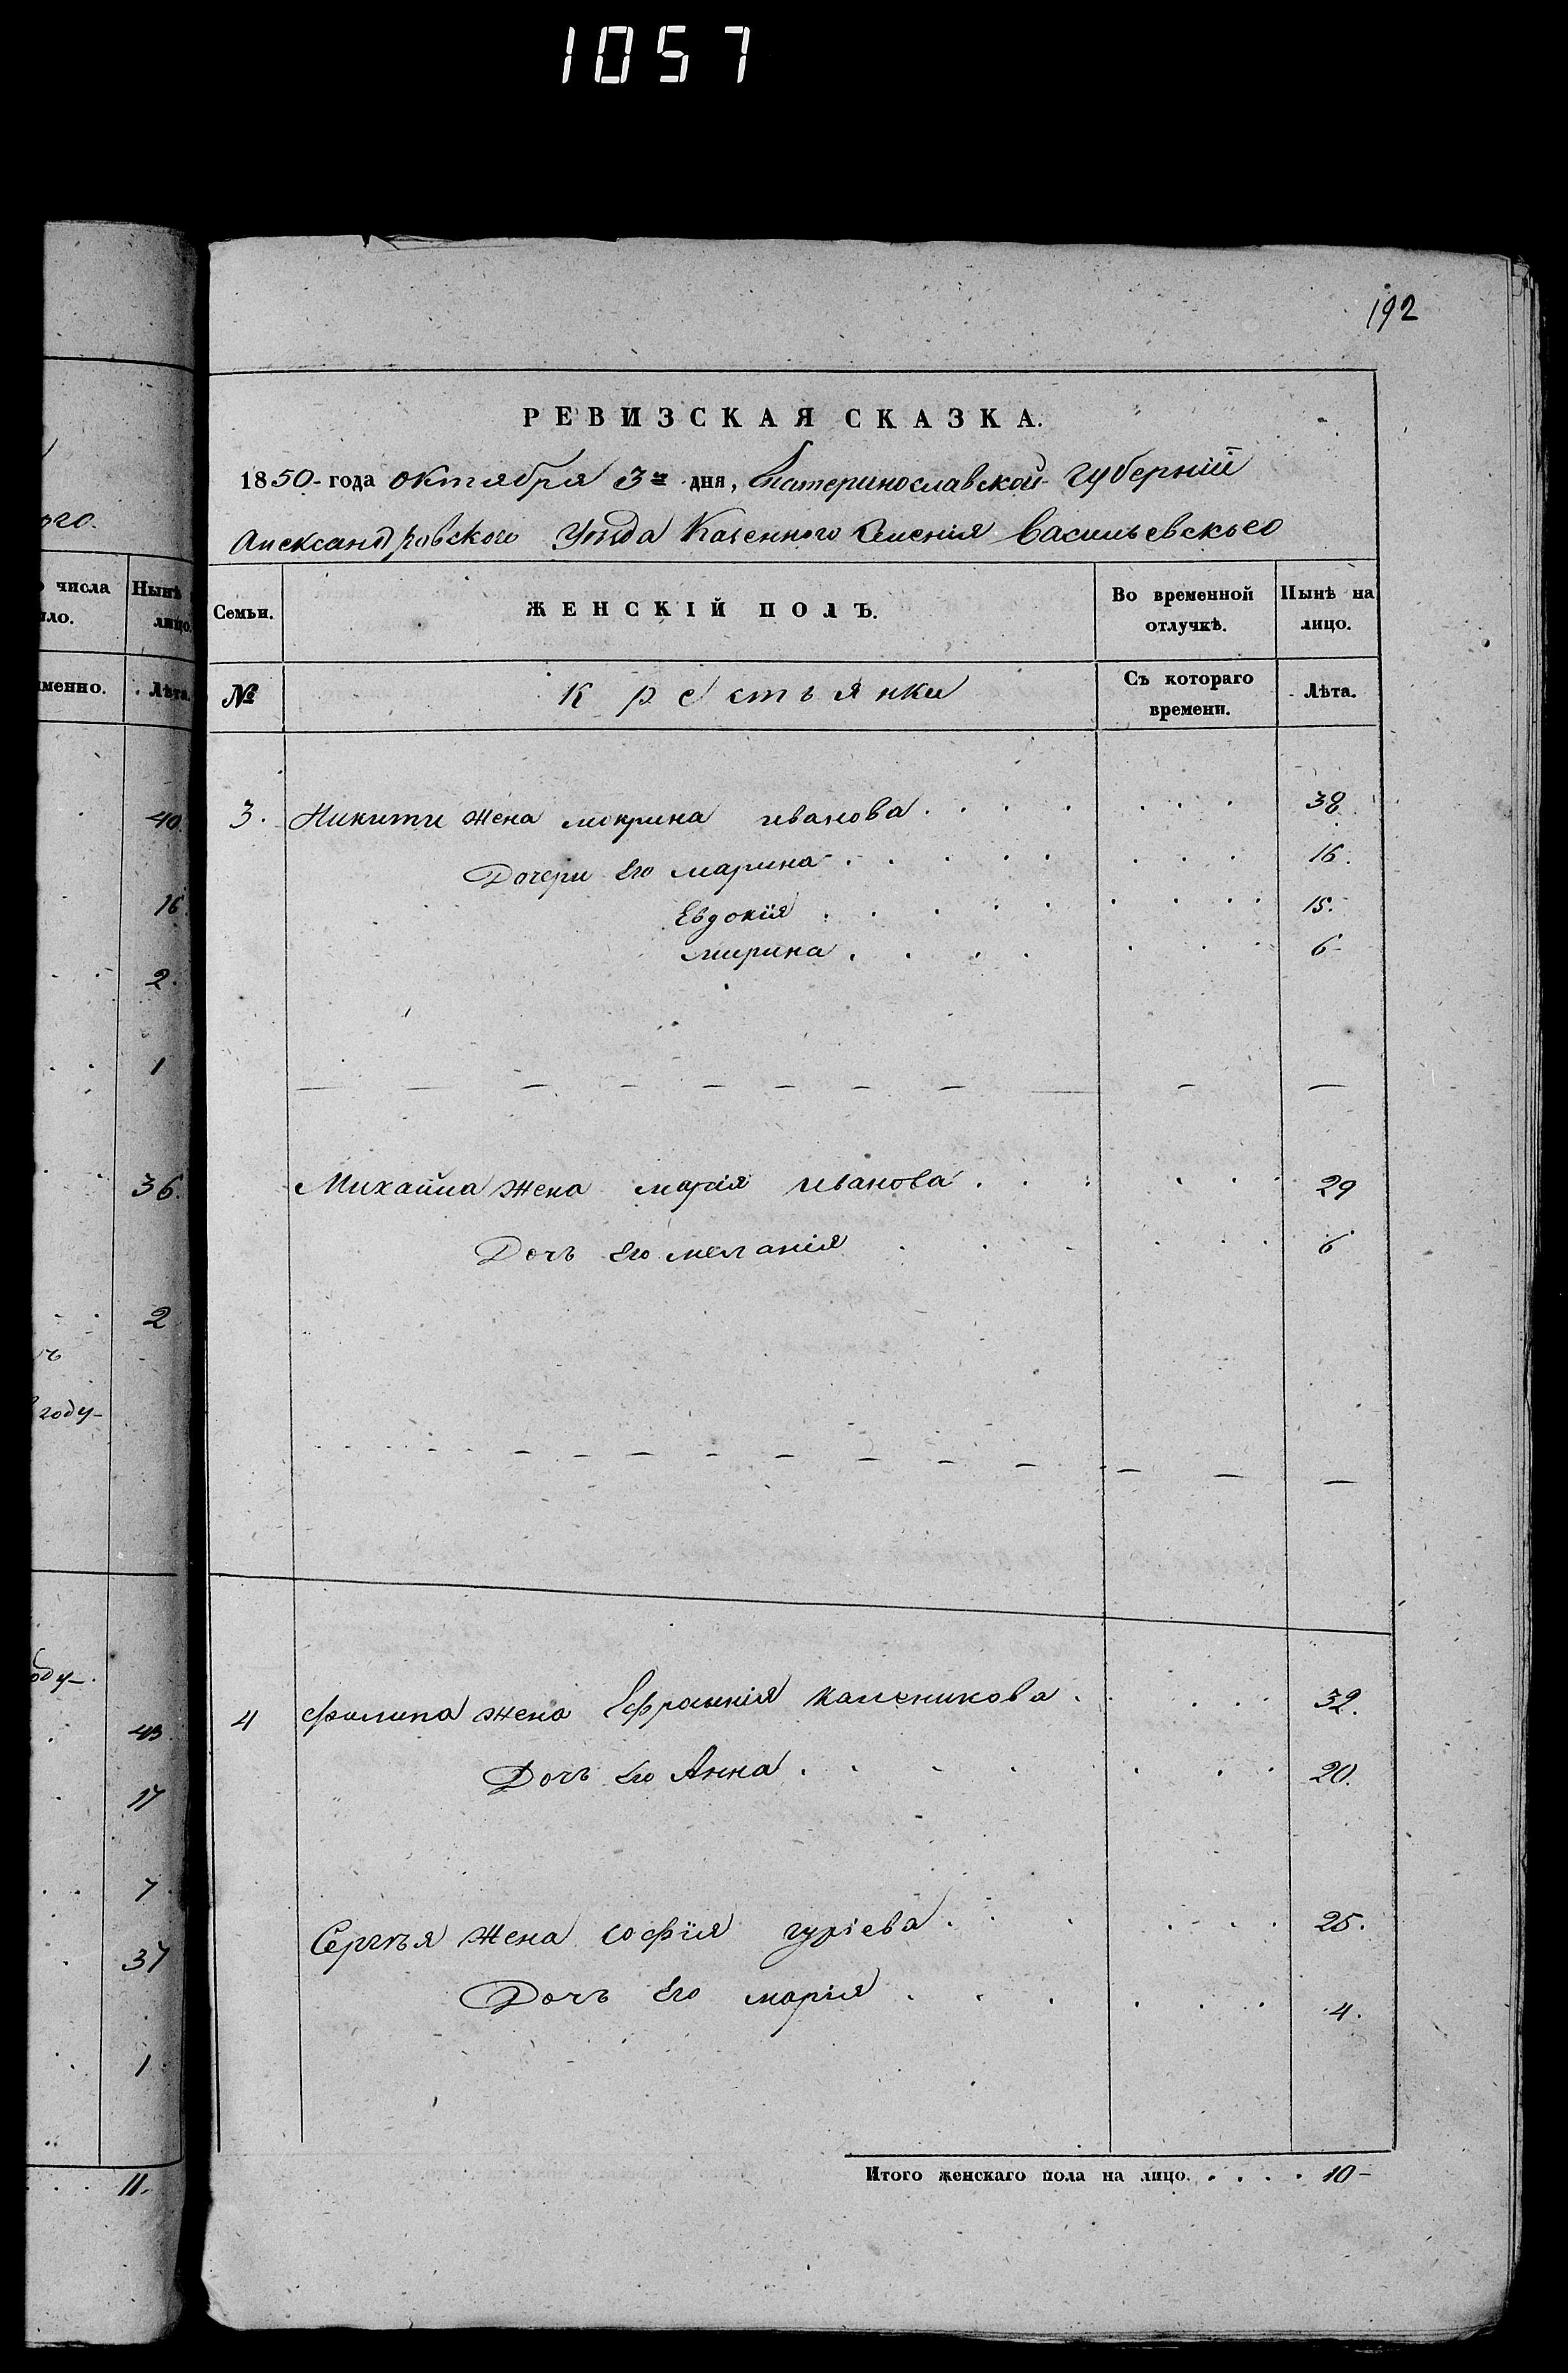 1057
192
РЕВИЗСКАЯ СКАЗКА.
1850- года октября 3го дня, Екатеринославской Губерніи
Александровского Уѣзда Казенного Селенія Васильевского
Семьи. ЖЕНСКІЙ ПОЛЪ. Во временной отлучкѣ. Нынѣ на лицо.
№ Крестьянки Съ котораго времени. Лѣта.
3. Никити жена мокрина иванова . . . . . . . 38
Дочери Его марина . . . . . . . . 16.
Евдокія . . . . . . . . . 15.
мирина . . . . . . . 6-
Михайла жена марія иванова . . . . . . 29
Дочь Его меланія . . . . . . 6
4 филипа жена Ефросинія каленикова . . . . . 39.
Дочь Его Анна . . . . . . . 20.
Сергѣя жена софія гуріева . . . . . . . 25.
Дочь Его марія . . . . . . 4.
Итого женскаго пола на лицо. . . . . 10-
ого.
числа
ло.
Нынѣ
лицо.
именно.
Лѣта.
40
16.
2.
1
36.
2
году-
оду-.
43.
17
7.
37
1
11.